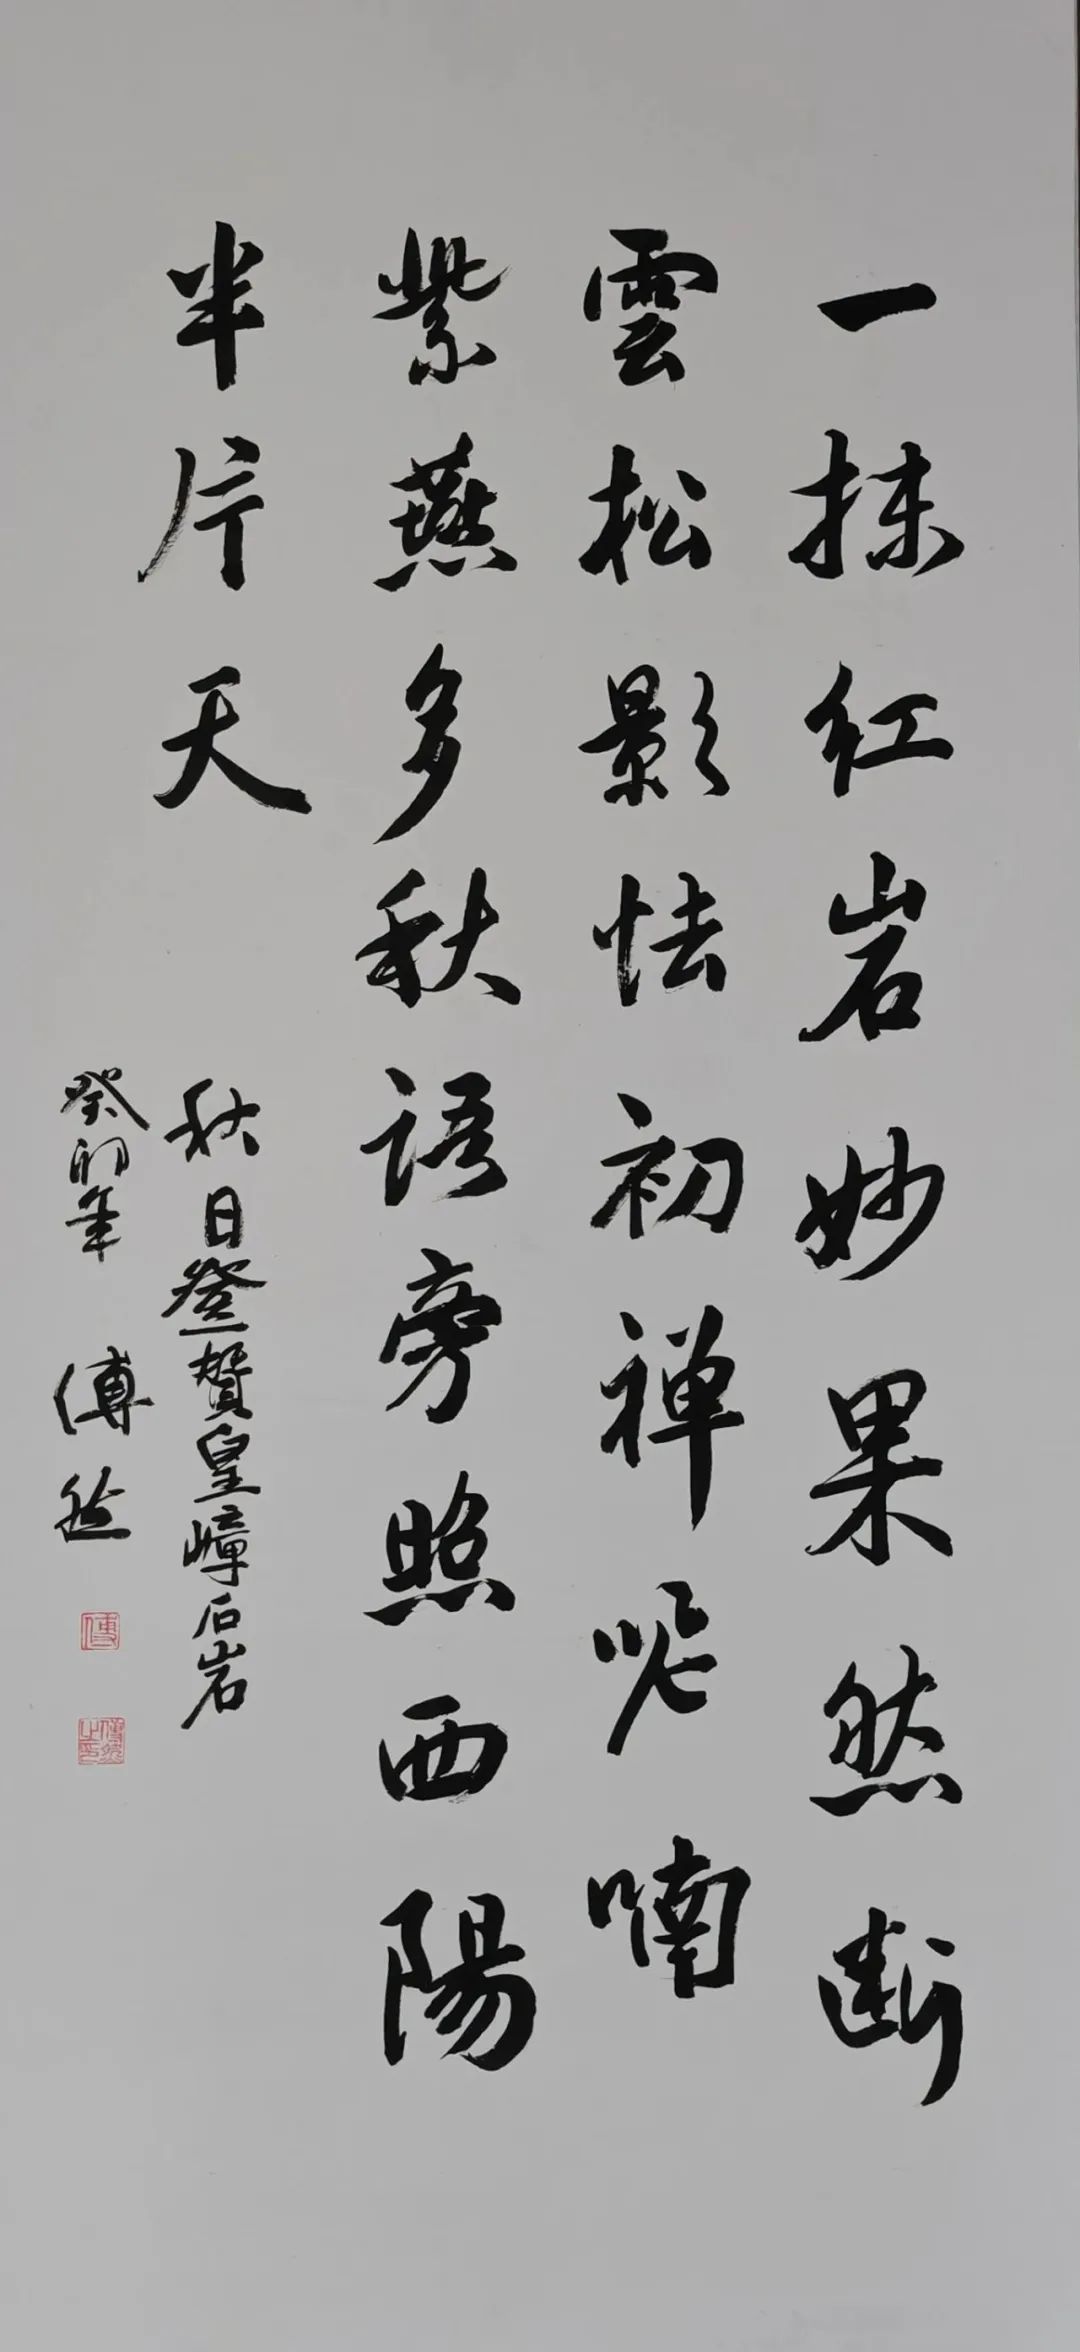 一抹红岩妙果然断
雲松影怯初禅呢喃
紫燕多秋语旁照西陽
半片天
秋日登赞皇嶂石岩
癸卯年 傅然
傅
傅然之印